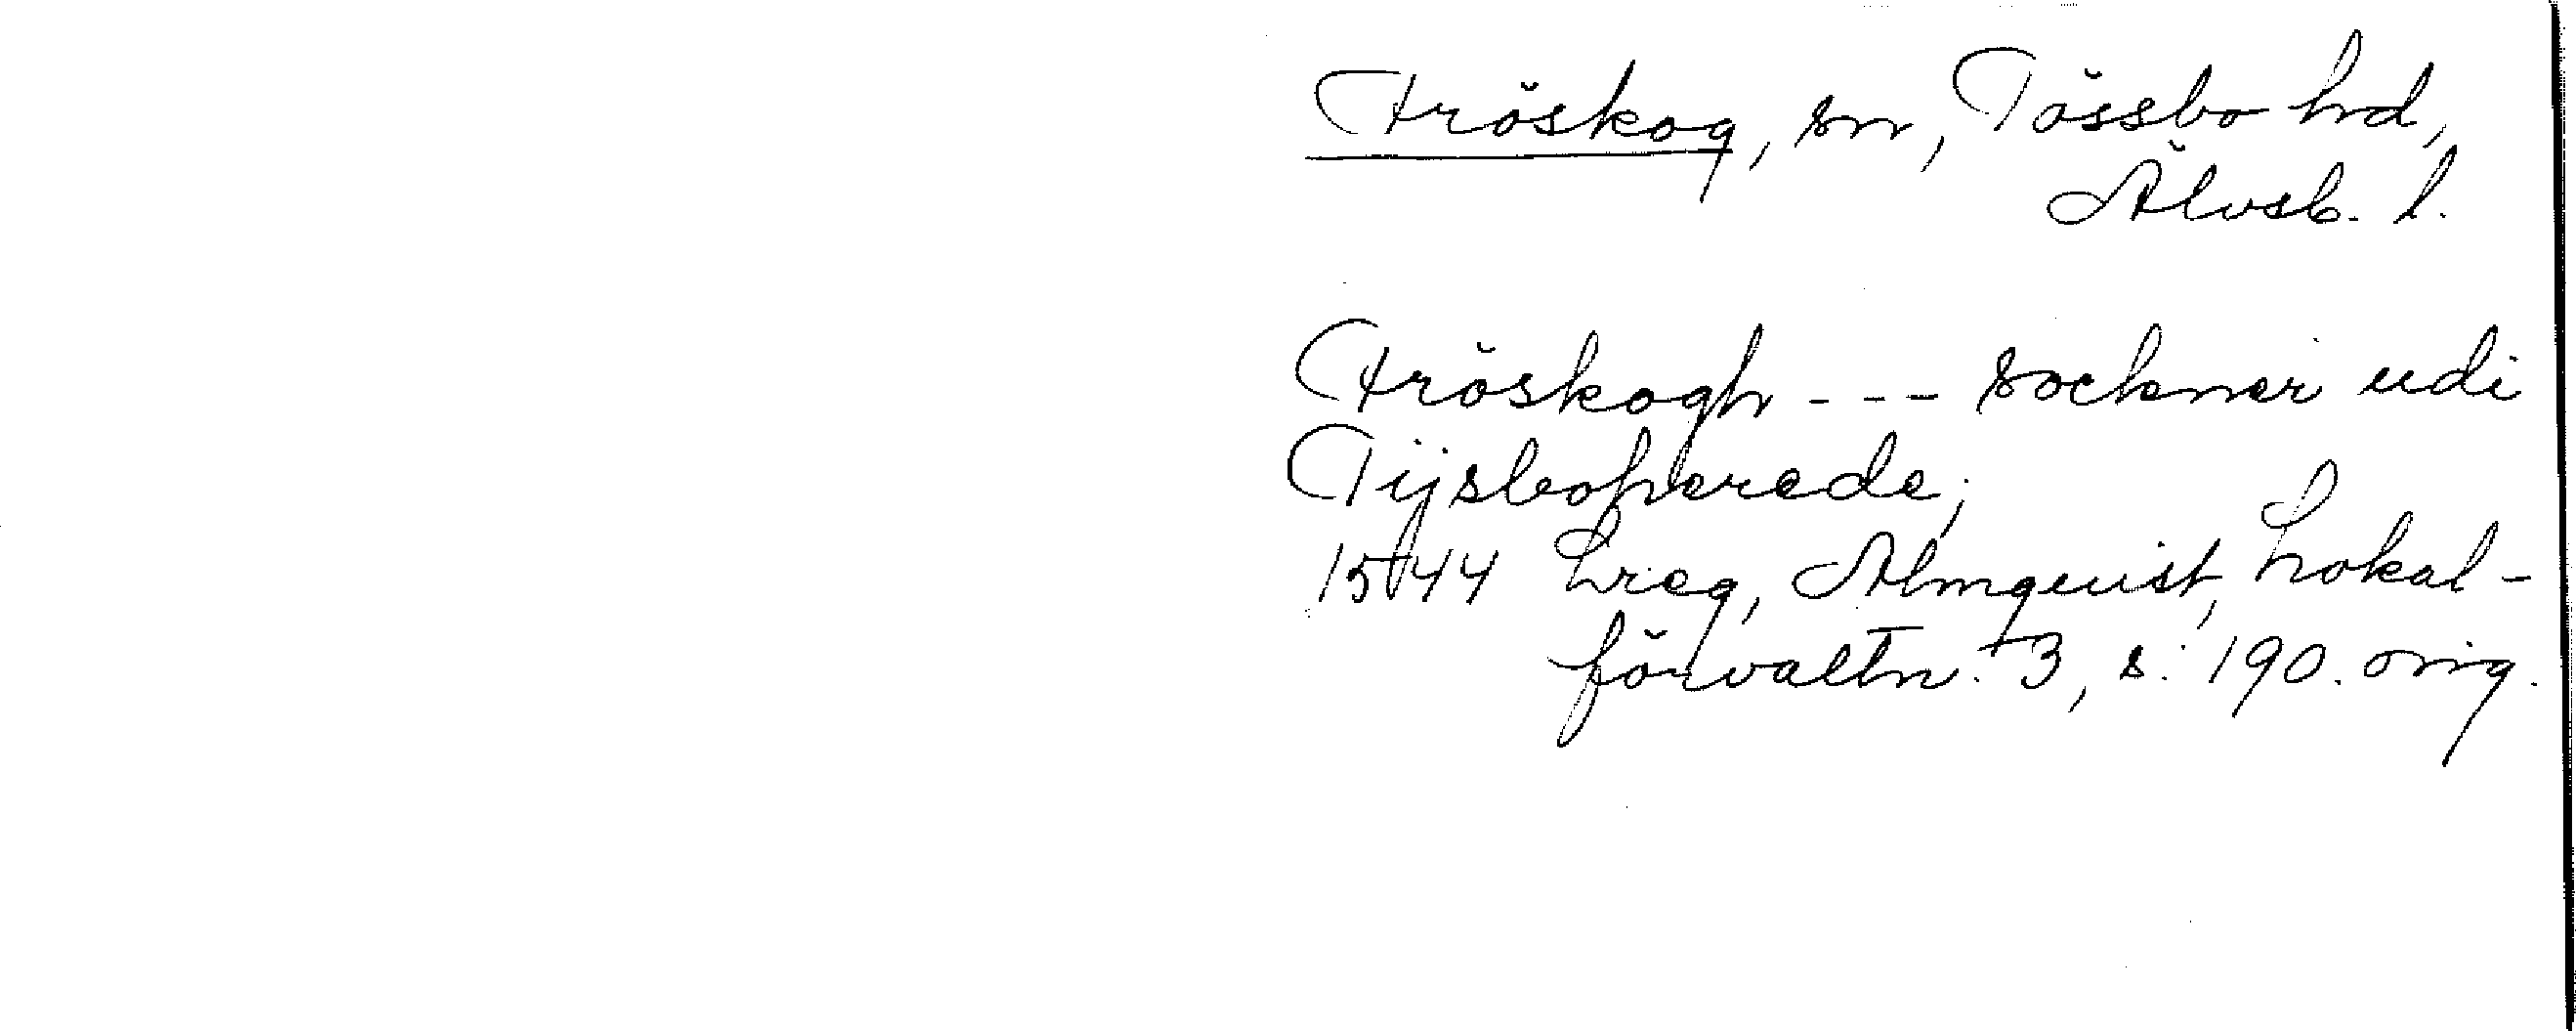 Fröskog, sn, Tössbo hd,
Älvsb. l.
Fröskogh --- sockner udi
Tijsboherede;
1544 Lreg, Almquist, Lokal-
förvaltn. 3, s. 190. orig.